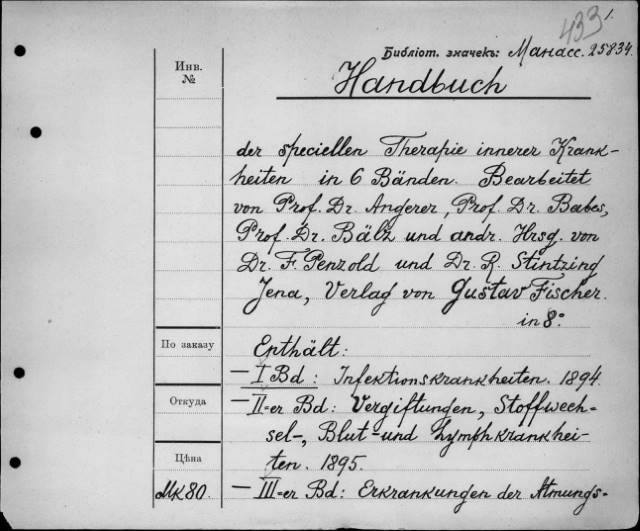 433 1.
Библіот. значекъ: Манасс. 25834.
Инв.
№
Handbuch
der speciellen Therapie innerer Krank-
heiten in 6 Bänden. Bearbeitet
von Prof. Dr. Angerer, Prof. Dr. Babes,
Prof. Dr. Bälz und andr. Hrsg. von
Dr. F. Penzold und Dr. R. Stintzing
Jena, Verlag von Gustav Fischer.
in 8º
По заказу
Enthält:
— I Bd: Infektionskrankheiten. 1894.
Откуда
— II-er Bd: Vergiftungen, Stoffwech-
sel-, Blut- und Lymphkrankhei-
ten. 1895.
Цѣна
Mk 80.
— III-er Bd: Erkrankungen der Atmungs-